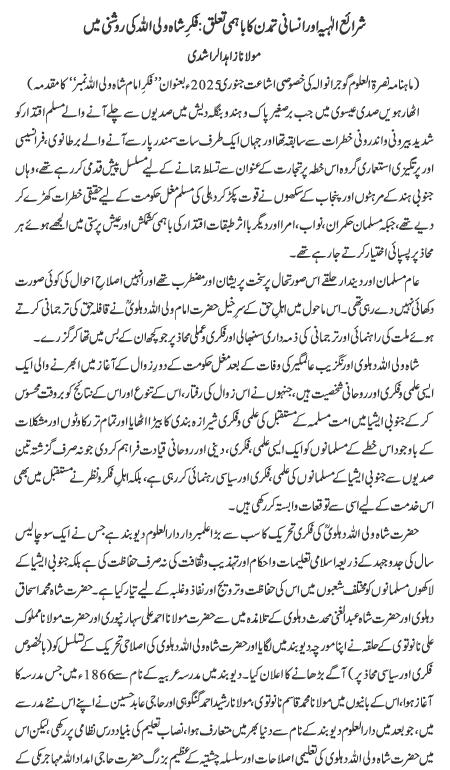 شرائع الٰہیہ اور انسانی تمدن کا باہمی تعلق: فکرِ شاہ ولی اللہ کی روشنی میں
مولانا زاہد الراشدی
(ماہنامہ نصرۃ العلوم گوجرانوالہ کی خصوصی اشاعت جنوری 2025ء بعنوان ’’فکرِ امام شاہ ولی اللہ نمبر‘‘ کا مقدمہ)
اٹھارہویں صدی عیسوی میں جب برصغیر پاک و ہند و بنگلہ دیش میں صدیوں سے چلے آنے والے مسلم اقتدار کو
شدید بیرونی و اندرونی خطرات سے سابقہ تھا اور جہاں ایک طرف سات سمندر پار سے آنے والے برطانوی، فرانسیسی
اور پرتگیزی استعماری گروہ اس خطہ پر تجارت کے عنوان سے تسلط جمانے کے لیے مسلسل پیش قدمی کر رہے تھے، وہاں
جنوبی ہند کے مرہٹوں اور پنجاب کے سکھوں نے قوت پکڑ کر دہلی کی مسلم مغل حکومت کے لیے حقیقی خطرات کھڑے کر
دیے تھے، جبکہ مسلمان حکمران، نواب، امرا اور دیگر با اثر طبقات اقتدار کی باہمی کشمکش اور عیش پرستی میں الجھے ہوئے ہر
محاذ پر پسپائی اختیار کرتے جا رہے تھے۔
عام مسلمان اور دیندار حلقے اس صورتحال پر سخت پریشان اور مضطرب تھے اور انہیں اصلاحِ احوال کی کوئی صورت
دکھائی نہیں دے رہی تھی۔ اس ماحول میں اہلِ حق کے سرخیل حضرت امام ولی اللہ دہلویؒ نے قافلۂ حق کی ترجمانی کرتے
ہوئے ملت کی راہنمائی اور ترجمانی کی ذمہ داری سنبھالی اور فکری و عملی محاذ پر جو کچھ ان کے بس میں تھا کر گزرے۔
شاہ ولی اللہ دہلوی اورنگزیب عالمگیر کی وفات کے بعد مغل حکومت کے دورِ زوال کے آغاز میں ابھرنے والی ایک
ایسی علمی و فکری اور روحانی شخصیت ہیں، جنہوں نے اس زوال کی رفتار، اس کے تنوع اور اس کے نتائج کو بروقت محسوس
کر کے جنوبی ایشیا میں امت مسلمہ کے مستقبل کی علمی و فکری شیرازہ بندی کا بیڑا اٹھایا اور تمام تر رکاوٹوں اور مشکلات
کے باوجود اس خطے کے مسلمانوں کو ایک ایسی علمی، فکری، دینی اور روحانی قیادت فراہم کر دی جو نہ صرف گزشتہ تین
صدیوں سے جنوبی ایشیا کے مسلمانوں کی علمی، فکری اور سیاسی رہنمائی کر رہی ہے، بلکہ اہلِ فکر و نظر نے مستقبل میں بھی
اس خدمت کے لیے اسی سے توقعات وابستہ کر رکھی ہیں۔
حضرت شاہ ولی اللہ دہلویؒ کی فکری تحریک کا سب سے بڑا علمبردار دارالعلوم دیوبند ہے جس نے ایک سو چالیس
سال کی جدوجہد کے ذریعہ اسلامی تعلیمات و احکام اور تہذیب و ثقافت کی نہ صرف حفاظت کی ہے بلکہ جنوبی ایشیا کے
لاکھوں مسلمانوں کو مختلف شعبوں میں اس کی حفاظت و ترویج اور نفاذ و غلبہ کے لیے تیار کیا ہے۔ حضرت شاہ محمد اسحاق
دہلوی اور حضرت شاہ عبدالغنی محدث دہلوی کے تلامذہ میں سے حضرت مولانا احمد علی سہارنپوری اور حضرت مولانا مملوک
علی نانوتوی کے حلقہ نے اپنا مورچہ دیوبند میں لگایا اور حضرت شاہ ولی اللہ دہلوی کی اصلاحی تحریک کے تسلسل کو (بالخصوص
فکری اور سیاسی محاذ پر) آگے بڑھانے کا اعلان کیا۔ دیوبند میں مدرسہ عربیہ کے نام سے 1866ء میں جس مدرسہ کا
آغاز ہوا، اس کے بانیوں میں مولانا محمد قاسم نانوتوی، مولانا رشید احمد گنگوہی اور حاجی عابد حسین نے اپنے اس نئے مدرسے
میں، جو بعد میں دارالعلوم دیوبند کے نام سے دنیا بھر میں متعارف ہوا، نصاب تعلیم کی بنیاد درس نظامی پر رکھی، لیکن اس
میں حضرت شاہ ولی اللہ دہلوی کی تعلیمی اصلاحات اور سلسلہ چشتیہ کے عظیم بزرگ حضرت حاجی امداد اللہ مہاجر مکی کے